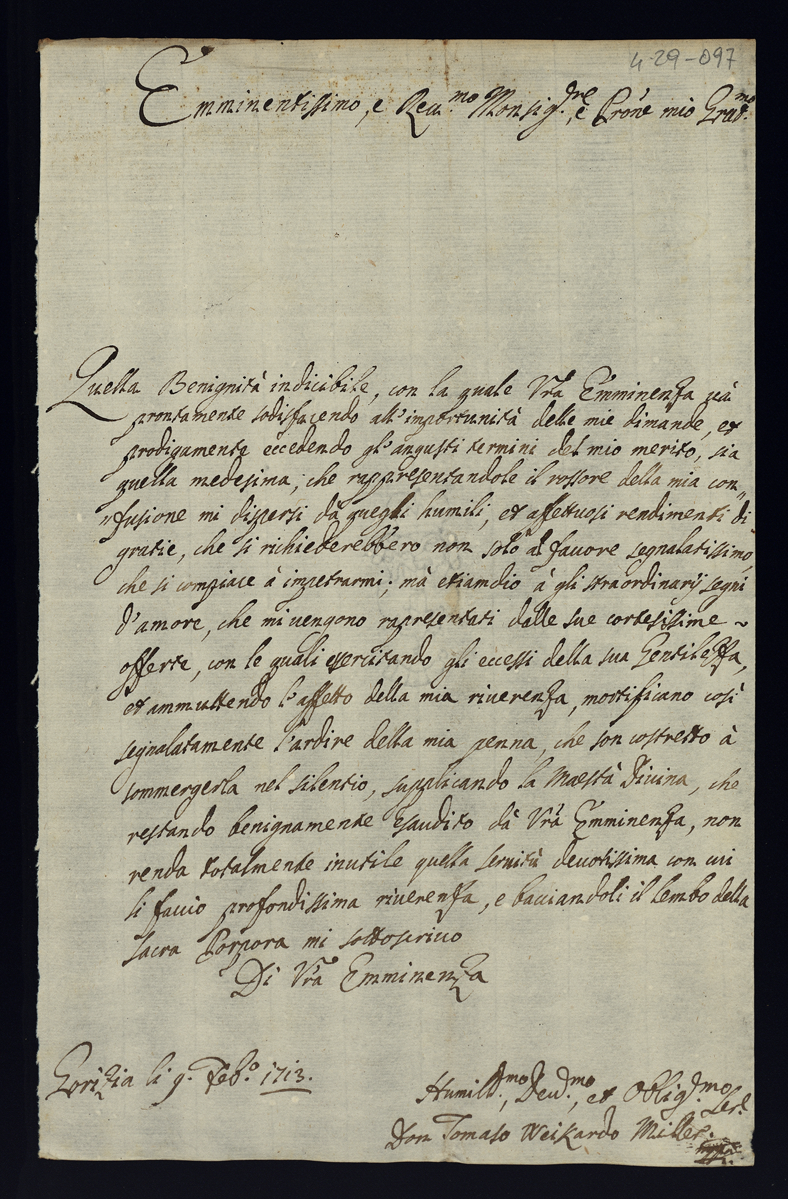 4-29-097
Emminentissimo, e Reu.mo Monsig.re, e Prone mio Grat.mo
Quella Benignità indicibile, con la quale Vra Emminenza và
prontamente sodisfacendo all'importunità delle mie dimande, et
prodigamente eccedendo gl'angusti termini del mio merito, sia
quella medesima, che rappresentandole il rossore della mia con„
„fusione mi dispensi dà quegli humili, et affettuosi rendimenti di
gratie, che si richiederebbero non solo al fauore segnalatissimo,
che si compiace à impetrarmi; mà etiamdio à gli straordinarij segni
d'amore, che mi uengono rapresentati dalle sue cortesissime ~
offerte, con le quali essercitando gli eccessi della sua Gentilezza,
et ammuttendo l'affetto della mia riuerenza, mortificano così
segnalatamente l'ardire della mia penna, che son costretto à
sommergerla nel silentio, supplicando la Maestà Diuina, che
restando benignamente esaudito dà Vra Emminenza, non
renda totalmente inutile quella seruitù deuotissima con cui
li faccio profondissima riuerenza, e bacciandoli il lembo della
sacra Porpora mi sottoscriuo
Di Vra Emminenza
Gorizia li 9. Feb.o 1713.
Humill.mo, Deu.mo, et Oblig.mo Ser.
Don Tomaso Weikardo Miller.